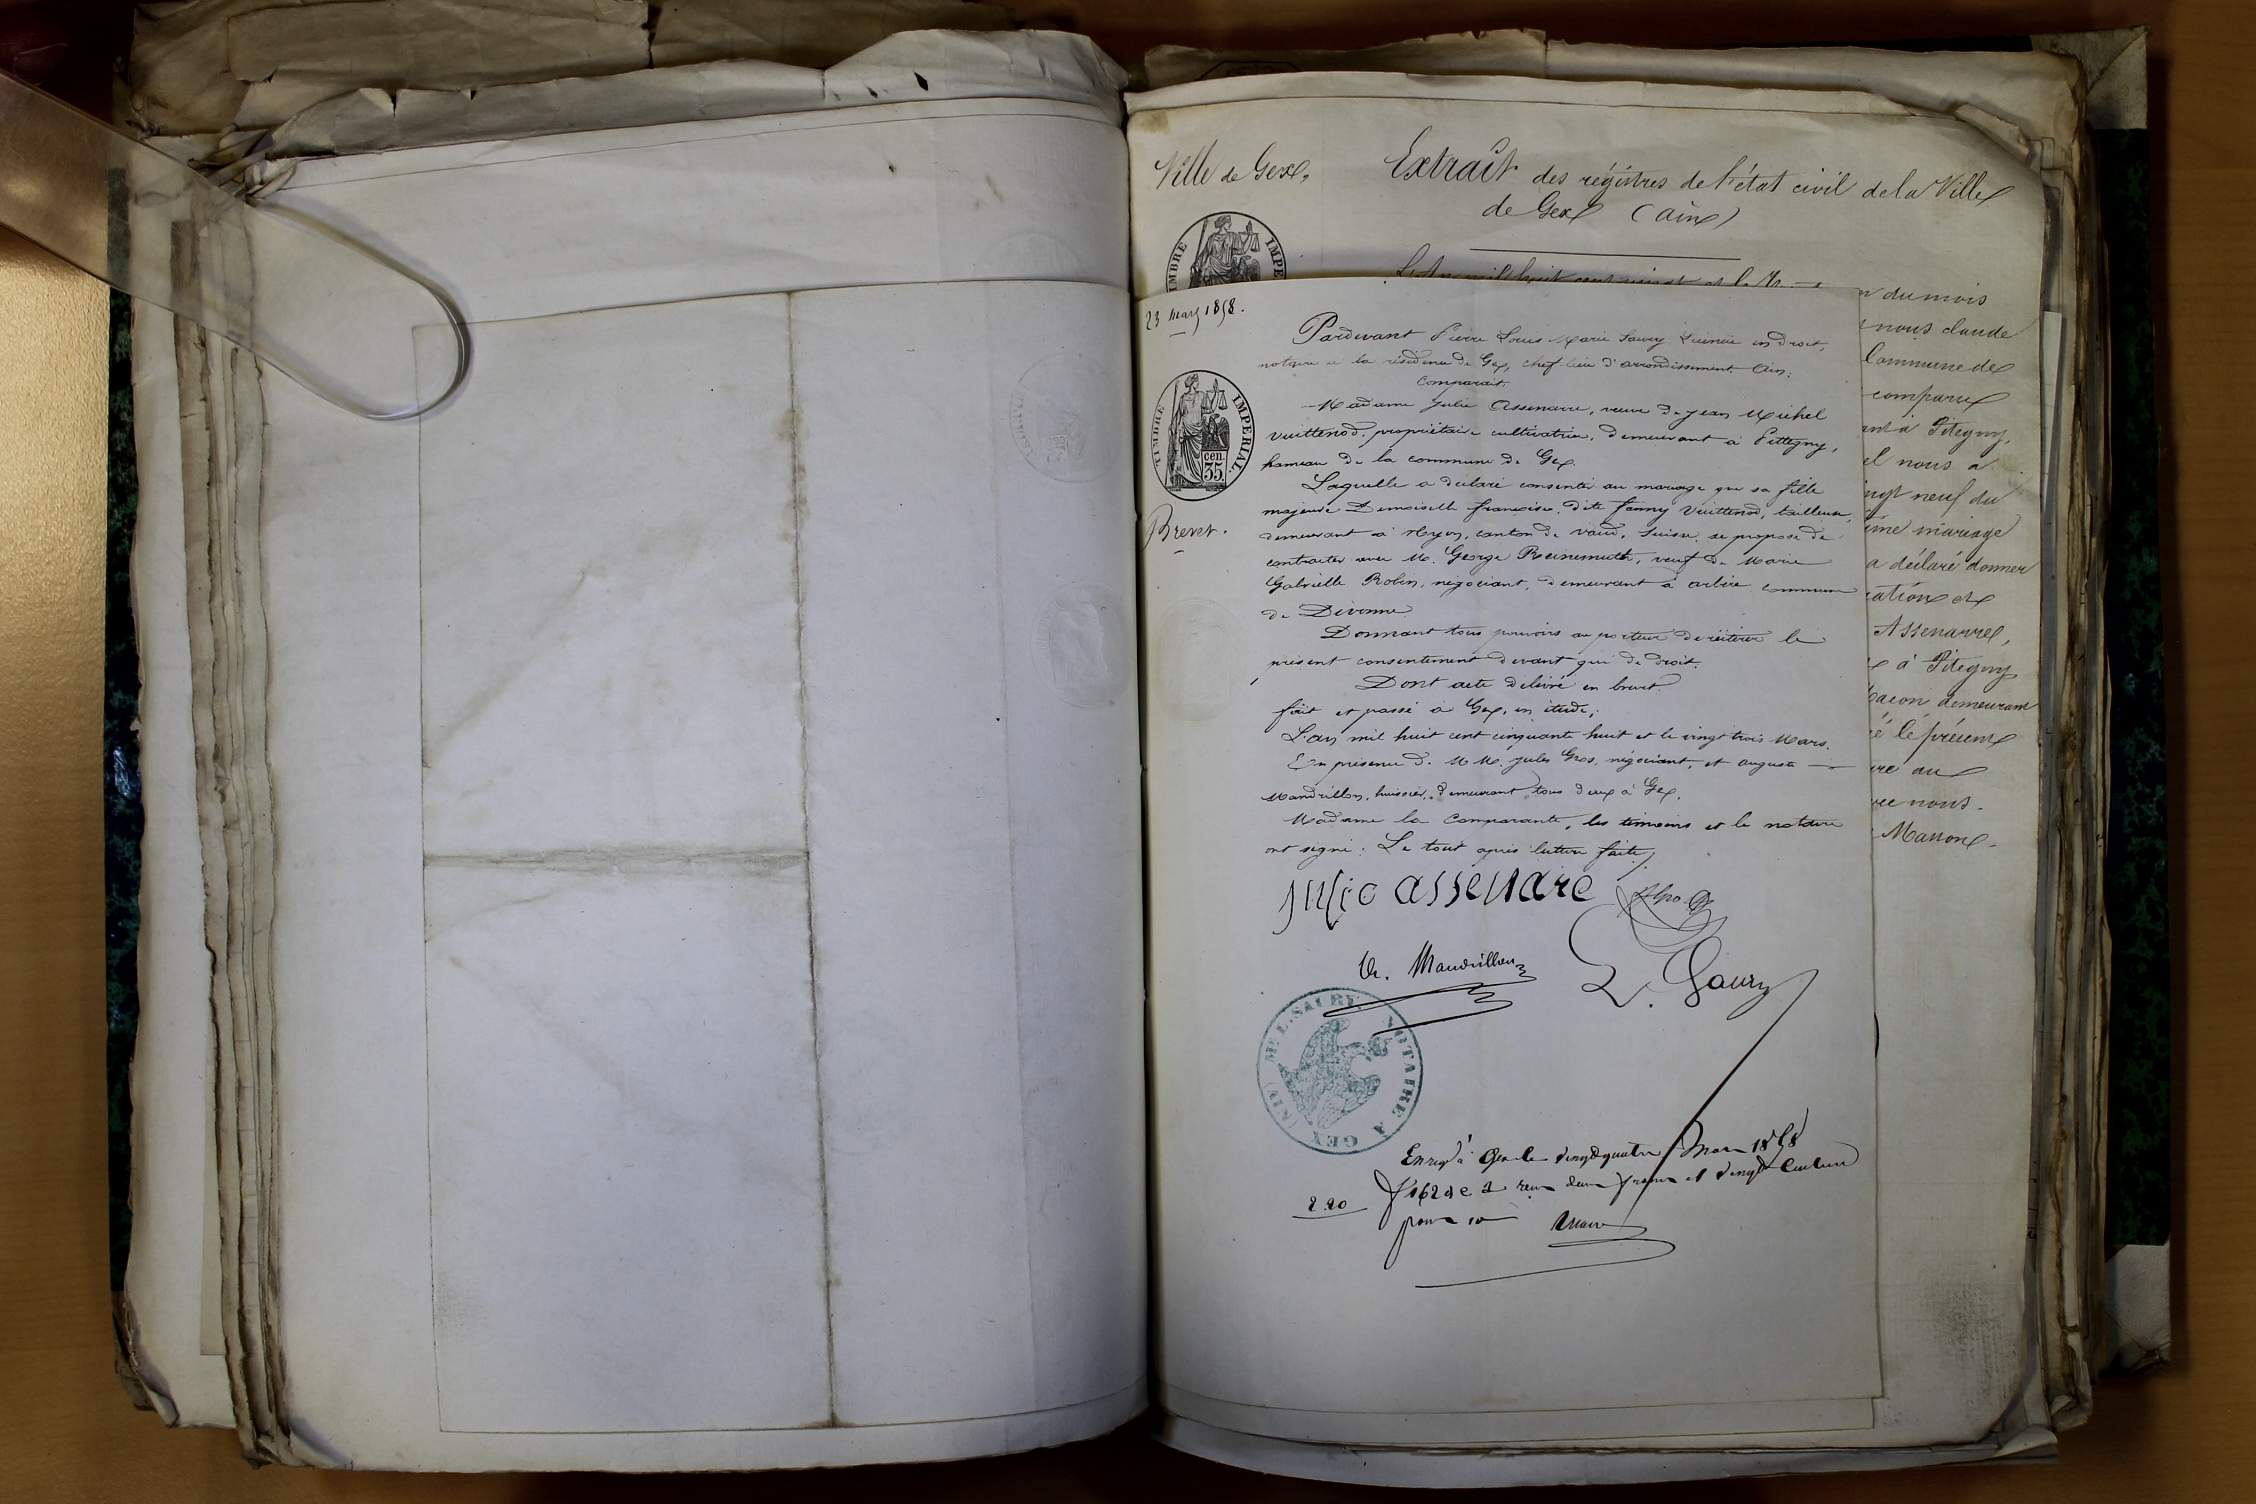 Ville de Gex,
Extrait des régistres de l'état civil de la Ville
de Gex (ain)
TIMBRE IMPE
L'An mil huit cent vingt et le
du mois
nous claude
Commune de
comparu
Pitegny,
el nous a
ingt neuf du
ime mariage
a déclaré donner
ation et
Assenarre,
à Pitegny
demeurant
le présent
ure au
nous.
Masson
23 mars 1858.
TIMBRE IMPERIAL.
cen.
35.
Brevet.
Pardevant Pierre Louis Marie Saury Licencié en droit,
notaire à la résidence de Gex, chef-lieu d'arrondissement Ain:
Comparait.
Madame Julie Assenarre, veuve de Jean Michel
Vuittenod, propriétaire cultivatrice, demeurant à Pittegny,
hameau de la commune de Gex.
Laquelle a déclaré consentir au mariage que sa fille
majeure Demoiselle françoise, dite fanny Vuittenod, tailleuse,
demeurant à Nyon, canton de Vaud, Suisse, se propose de
contracter avec M. George Reinemuth, veuf de Marie
Gabrielle Robin, négociant, demeurant à arbère commune
de Divonne.
Donnant tous pouvoirs au porteur de réitérer le
présent consentement devant qui de droit.
Dont acte délivré en brevet.
fait et passé à Gex, en étude,
L'an mil huit cent cinquante huit et le vingt trois Mars.
En présence de MM. Jules Gros, négociant, et auguste
Mandrillon, huissier, demeurant tous deux à Gex.
Madame la Comparante, les témoins et le notaire
ont signé: Le tout après lecture faite
Julie assenare
A. Mandrillon
L. Saury
ME. L. SAURY NOTAIRE A GEX (AIN)
Enregé à Gex le vingt quatre Mars 1858
f° 162 re deux francs et vingt centimes
2.20